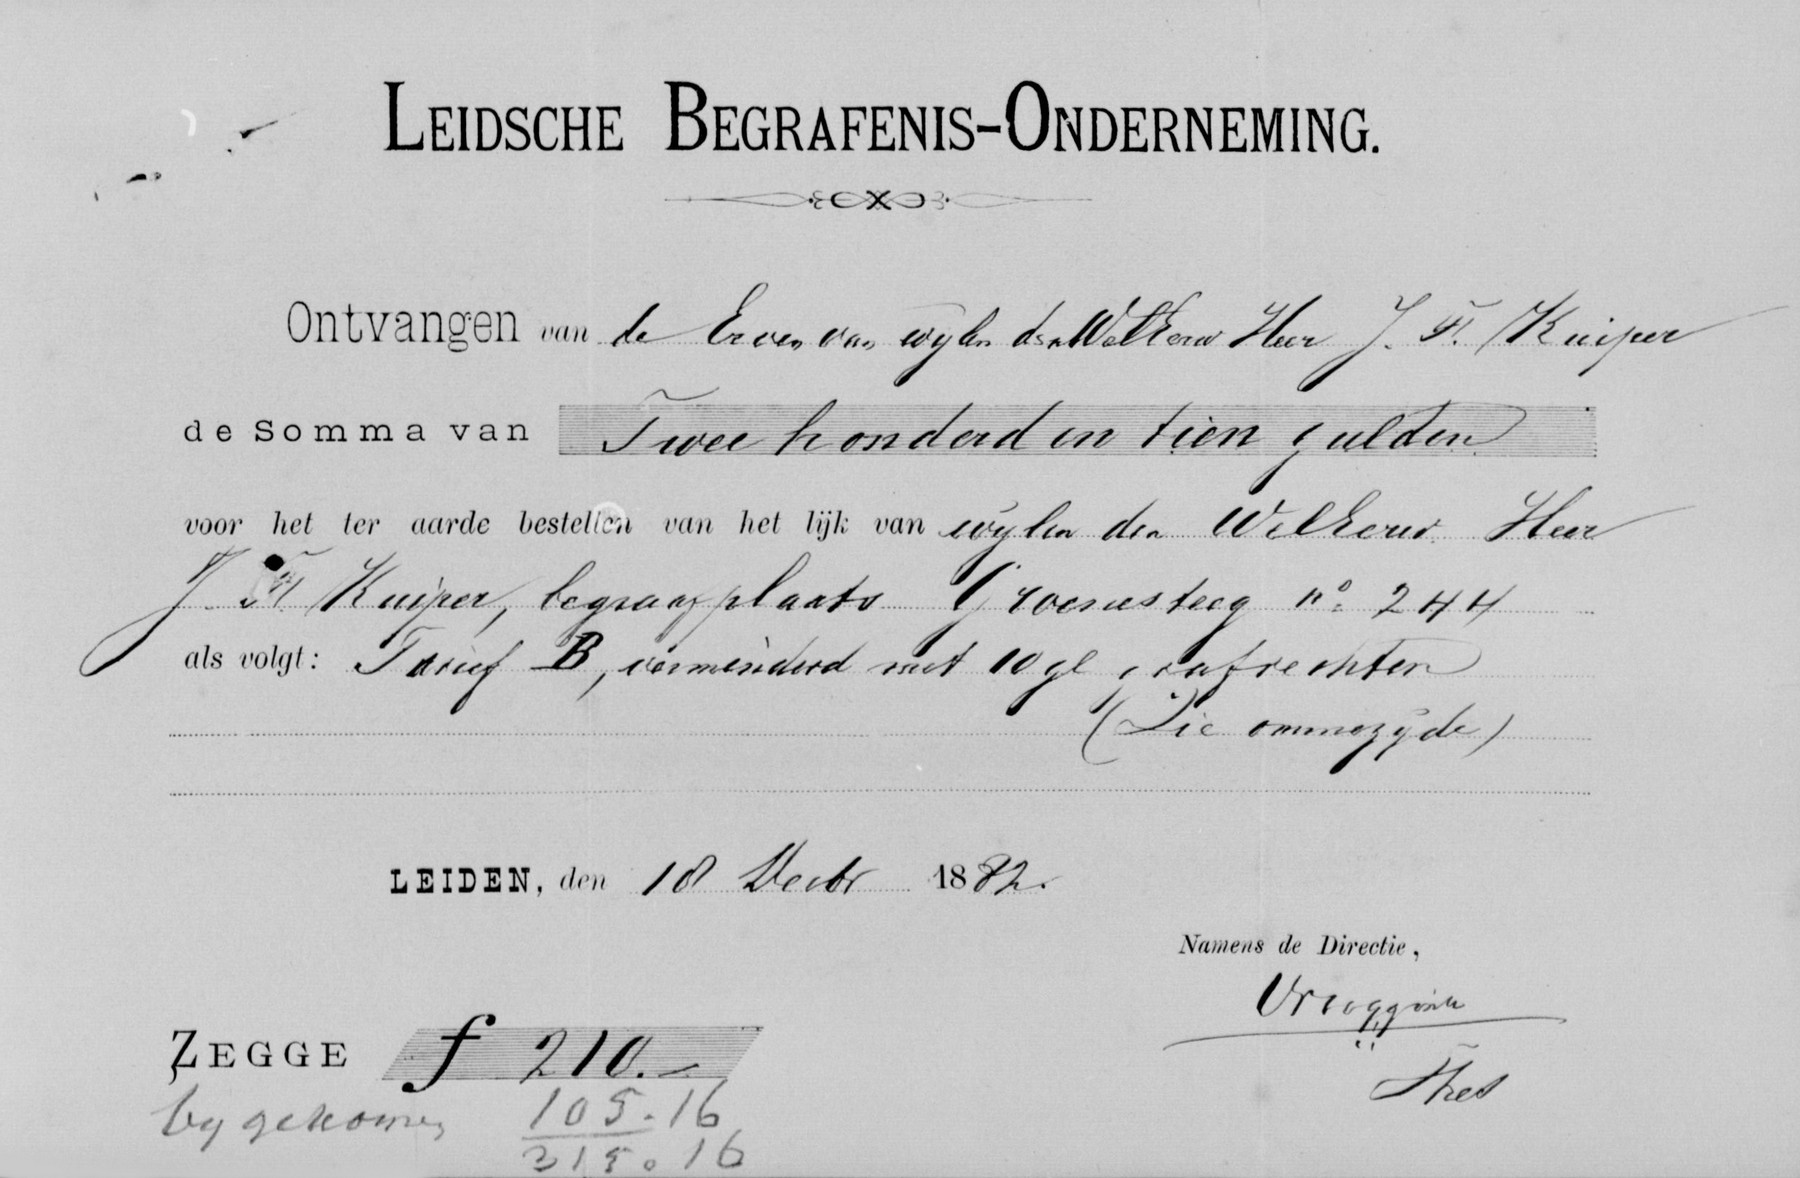 LEIDSCHE BEGRAFENIS-ONDERNEMING.
Ontvangen van de Erven van wylen den WelEerw Heer J. F. Kuiper
de Somma van Twee honderd en tien gulden
voor het ter aarde bestellen van het lijk van wylen den WelEerw. Heer
J. F. Kuiper, begraafplaats Groenesteeg nº. 244
als volgt: Tarief B, verminderd met 10 gl grafrechten
(Zie ommezyde)
LEIDEN, den 18 Decbr 1882.
Namens de Directie,
Thes
ZEGGE f 210.-
bygekomen 105.16
315.16